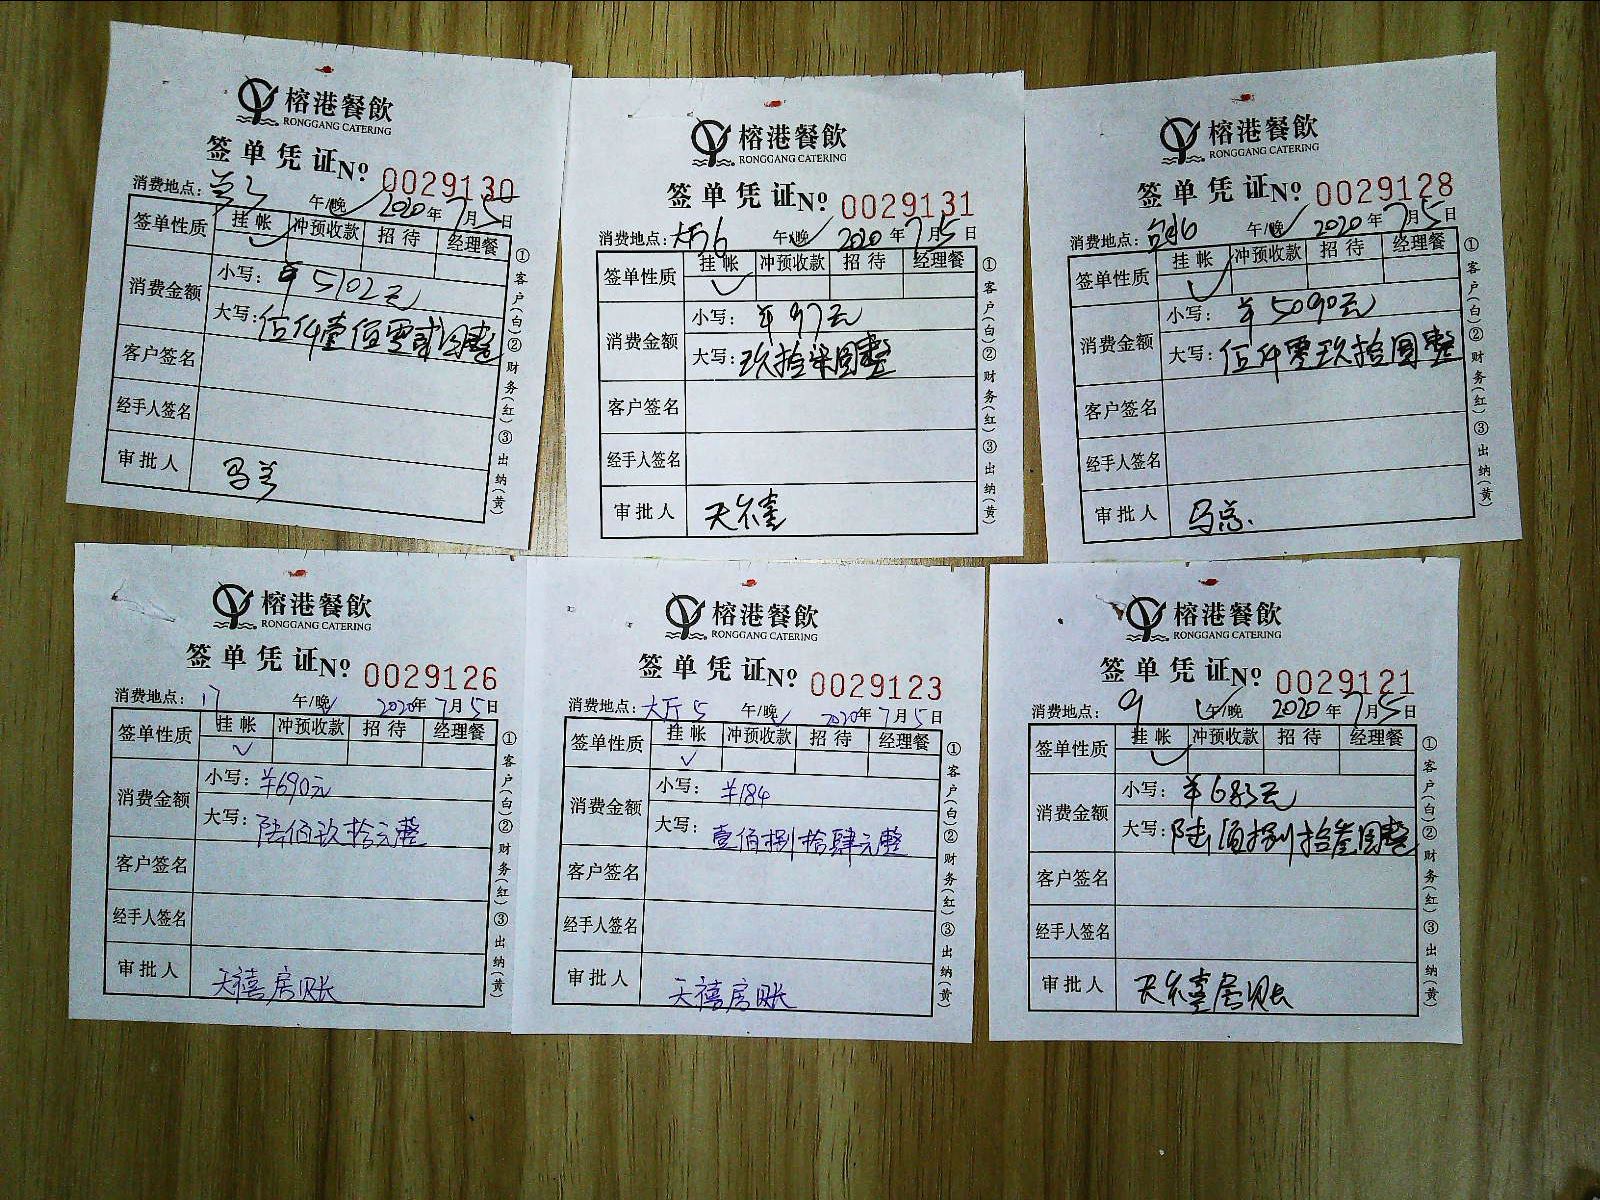 榕港餐飲
RONGGANG CATERING
签单凭证 № 0029130
消费地点： 午/晚 2020年7月5日
签单性质 挂帐 冲预收款 招待 经理餐
消费金额 小写：¥5102元
大写：伍仟壹佰零贰圆整
客户签名
经手人签名
审批人 马总
①客户(白)②财务(红)③出纳(黄)
榕港餐飲
RONGGANG CATERING
签单凭证 № 0029131
消费地点：大厅6 午/晚 2020年7月5日
签单性质 挂帐 冲预收款 招待 经理餐
消费金额 小写：¥97元
大写：玖拾柒圆整
客户签名
经手人签名
审批人 天禧
①客户(白)②财务(红)③出纳(黄)
榕港餐飲
RONGGANG CATERING
签单凭证 № 0029128
消费地点： 午/晚 2020年7月5日
签单性质 挂帐 冲预收款 招待 经理餐
消费金额 小写：¥5090元
大写：伍仟零玖拾圆整
客户签名
经手人签名
审批人 马总
①客户(白)②财务(红)③出纳(黄)
榕港餐飲
RONGGANG CATERING
签单凭证 № 0029126
消费地点：17 午/晚 2020年7月5日
签单性质 挂帐 冲预收款 招待 经理餐
消费金额 小写：¥690元
大写：陆佰玖拾元整
客户签名
经手人签名
审批人 天禧房账
①客户(白)②财务(红)③出纳(黄)
榕港餐飲
RONGGANG CATERING
签单凭证 № 0029123
消费地点：大厅5 午/晚 2020年7月5日
签单性质 挂帐 冲预收款 招待 经理餐
消费金额 小写：¥184
大写：壹佰捌拾肆元整
客户签名
经手人签名
审批人 天禧房账
①客户(白)②财务(红)③出纳(黄)
榕港餐飲
RONGGANG CATERING
签单凭证 № 0029121
消费地点：9 午/晚 2020年7月5日
签单性质 挂帐 冲预收款 招待 经理餐
消费金额 小写：¥683元
大写：陆佰捌拾叁圆整
客户签名
经手人签名
审批人 天禧房账
①客户(白)②财务(红)③出纳(黄)